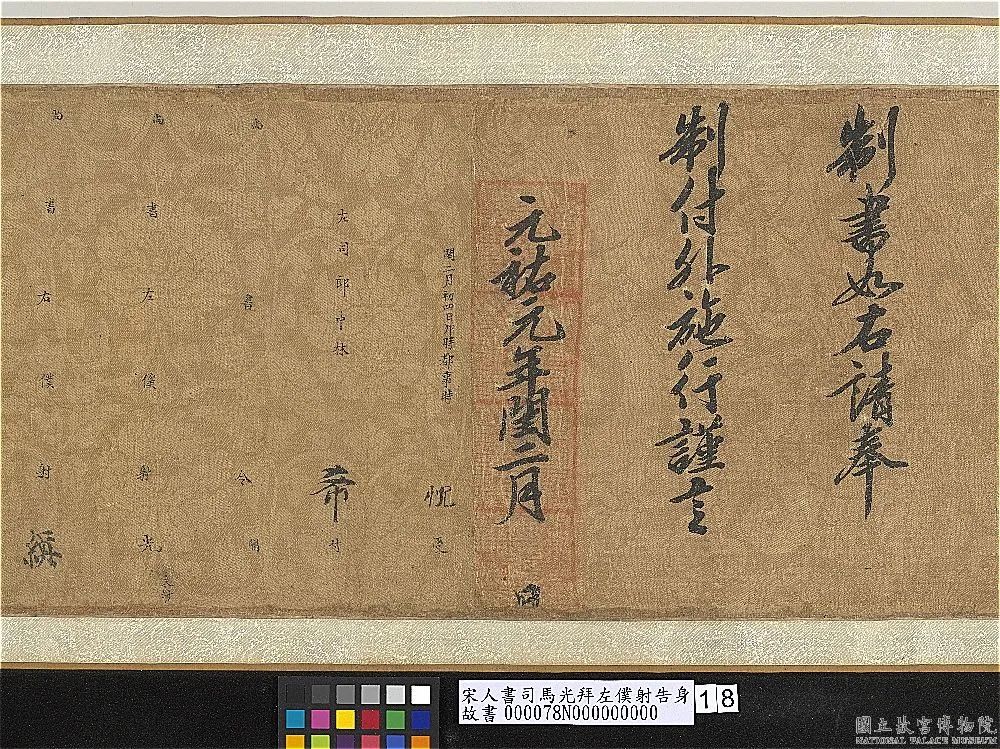 制書如右請奉
制付外施行謹言
元祐元年閏二月 日
閏二月初四日午時都事時 悅 受
左司郎中林 希 付
尚書令 闕
尚書左僕射 光
尚書右僕射
宋人書司馬光拜左僕射告身
故書 000078N000000000
18
國立故宮博物院
NATIONAL PALACE MUSEUM